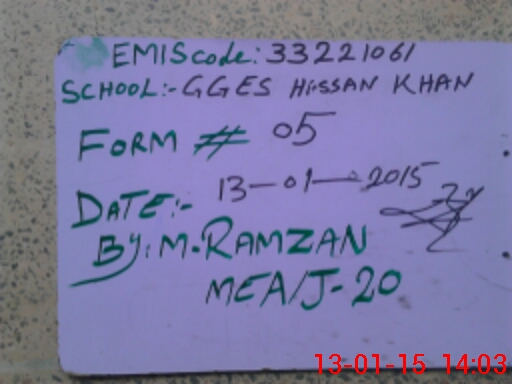 EMIS code: 33221061
SCHOOL:- GGES HASSAN KHAN
FORM # 05
DATE:- 13-01-2015
BY: M. RAMZAN
MEA/J-20
13-01-15 14:03